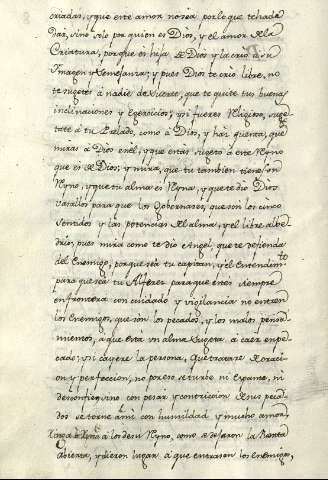 criadas, y que este amor no sea por lo que te ha de
dar, sino solo por quien es Dios, y el amor de la
Criatura, porque es hija de Dios y la crio a su
Imagen y Semejanza; y pues Dios te crio libre, no
te sugetes à nadie de suerte, que te quite tus buenas
inclinaciones y Egercicios; y si fueres Religioso, suge-
tate à tu Prelado, como à Dios, y haz quenta, que
miras à Dios en el; y que estàs sugeto à este Reyno
que es de Dios; y mira, que tu tambien tienes un
Reyno, y que tu alma es Reyna, y que te dio Dios
vasallos para que los Gobernases, que son los cinco
sentidos y las potencias del alma, y el libre albe-
drio, pues mira como te dio Angel, que te defienda
del Enemigo, porque sea tu capitan, y el Entendim.to
para que sea tu Alferez para que estès siempre
en frontera con cuidado y vigilancia no entren
los Enemigos, que son los pecados, y los malos pensa-
mientos, à que està un alma sugeta à caer en pe-
cado; y si cayere la persona, que tratare de oraci-
on y perfeccion, no por eso se turbe ni espante, ni
desconfie, sino con pesar y contricion de sus peca-
dos se torne à mi con humildad y mucho amor,
à los de su Reyno, como se dejaron la Puerta
abierta, y dieron lugar à que entrasen los Enemigos,